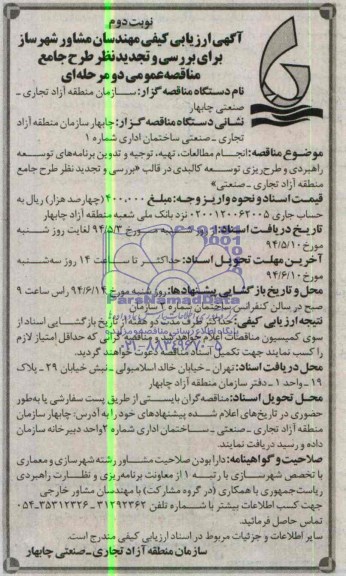 نوبت دوم
آگهی ارزیابی کیفی مهندسان مشاور شهرساز
برای بررسی و تجدیدنظر طرح جامع
مناقصه عمومی دو مرحله‌ای
نام دستگاه مناقصه گزار: سازمان منطقه آزاد تجاری ـ
صنعتی چابهار
نشانی دستگاه مناقصه گزار: چابهار سازمان منطقه آزاد
تجاری ـ صنعتی ساختمان اداری شماره ۱
موضوع مناقصه: انجام مطالعات، تهیه، توجیه و تدوین برنامه‌های توسعه
راهبردی و طرح‌ریزی توسعه کالبدی در قالب «بررسی و تجدید نظر طرح جامع
منطقه آزاد تجاری ـ صنعتی»
قیمت اسناد و نحوه واریز وجه: مبلغ ۴۰۰.۰۰۰ (چهارصد هزار) ریال به
حساب جاری ۰۲۰۰۱۲۰۰۶۲۰۰۵ نزد بانک ملی شعبه منطقه آزاد چابهار
تاریخ دریافت اسناد: از روز شنبه مورخ ۹۴/۵/۳ لغایت روز شنبه
مورخ ۹۴/۵/۱۰
آخرین مهلت تحویل اسناد: حداکثر تا ساعت ۱۴ روز سه‌شنبه
مورخ ۹۴/۶/۱۰
محل و تاریخ بازگشایی پیشنهادها: روز شنبه مورخ ۹۴/۶/۱۴ راس ساعت ۹
صبح در سالن کنفرانس ساختمان شماره ۱ سازمان
نتیجه ارزیابی کیفی: ظرف مدت دو هفته از تاریخ بازگشایی اسناد از
سوی کمیسیون مناقصات اعلام خواهد شد و مناقصه گرانی که حداقل امتیاز لازم
را کسب نمایند جهت تکمیل اسناد مناقصه دعوت خواهند گردید.
محل دریافت اسناد: تهران ـ خیابان خالد اسلامبولی ـ نبش خیابان ۲۹ ـ پلاک
۱۹ ـ واحد ۱ ـ دفتر سازمان منطقه آزاد چابهار
محل تحویل اسناد: مناقصه گران بایستی از طریق پست سفارشی یا به‌طور
حضوری در تاریخ‌های اعلام شده پیشنهادهای خود را به آدرس: چابهار سازمان
منطقه آزاد تجاری ـ صنعتی ـ ساختمان اداری شماره ۲ واحد دبیرخانه سازمان
داده و رسید دریافت نمایند.
صلاحیت و گواهینامه: دارا بودن صلاحیت مشاور رشته شهرسازی و معماری
با تخصص شهرسازی با رتبه ۱ از معاونت برنامه‌ریزی و نظارت راهبردی
ریاست‌جمهوری با همکاری (در گروه مشارکت) با مهندسان مشاور خارجی
جهت کسب اطلاعات بیشتر با شماره تلفن ۳۱۲۹۲۳۶۲ و ۳۵۳۱۲۳۲۶-۰۵۴
تماس حاصل فرمائید.
سایر اطلاعات و جزئیات مربوط در اسناد ارزیابی کیفی مندرج است.
سازمان منطقه آزاد تجاری ـ صنعتی چابهار
ParsNamadData
پایگاه اطلاع رسانی مناقصه و مزایده
۰۲۱-۸۸۳۴۹۶۷۰-۵